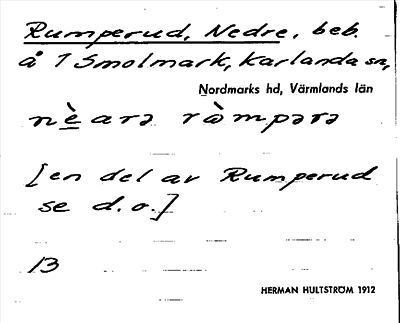 Rumperud, Nedre, beb.
å 1 Smolmark, Karlanda sn,
Nordmarks hd, Värmlands län
nèarə ròmpərə
[en del av Rumperud
se d.o.]
13
HERMAN HULTSTRÖM 1912